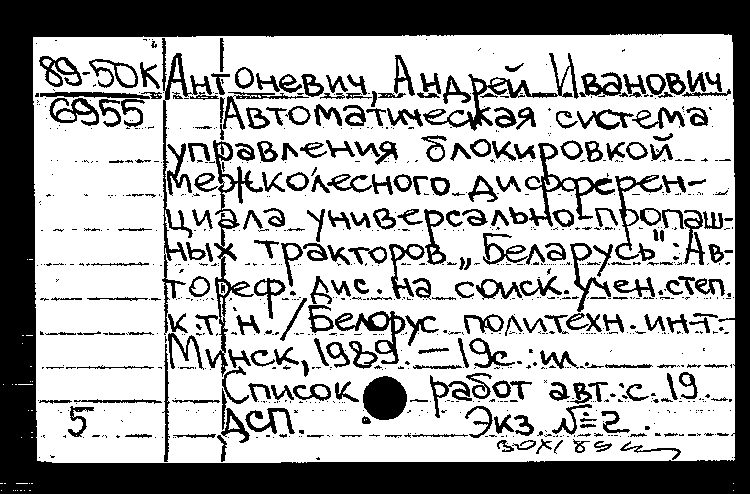 89-50К Антоневич, Андрей Иванович.
6955 Автоматическая система
управления блокировкой
межколесного дифферен-
циала универсально-пропаш-
ных тракторов „Беларусь": Ав-
тореф. дис. на соиск. учен. степ.
к.т.н. / Белорус. политехн. ин-т.-
Минск, 1989. — 19с.: ил.
Список работ авт.: с. 19.
5 ДСП. Экз. №2.